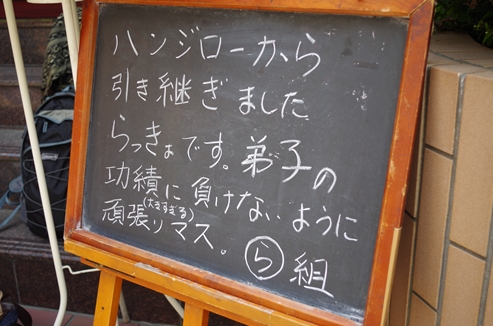 ハンジローから
引き継ぎました
らっきょです。弟子の
功績に負けないように
(大きすぎる)
頑張りマス。 ら 組